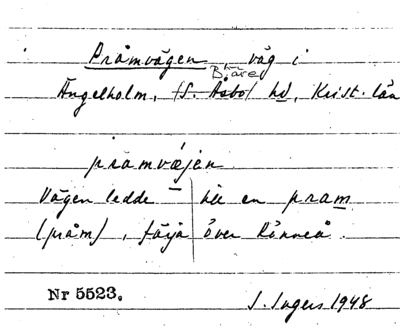 Pråmvägen väg i
Bjäre
Ängelholm, (S. Åsbo) hd, Krist. län
pråmvæjen
Vägen ledde till en pram
(pråm), färja över Rönneå.
Nr 5523. I. Ingers 1948